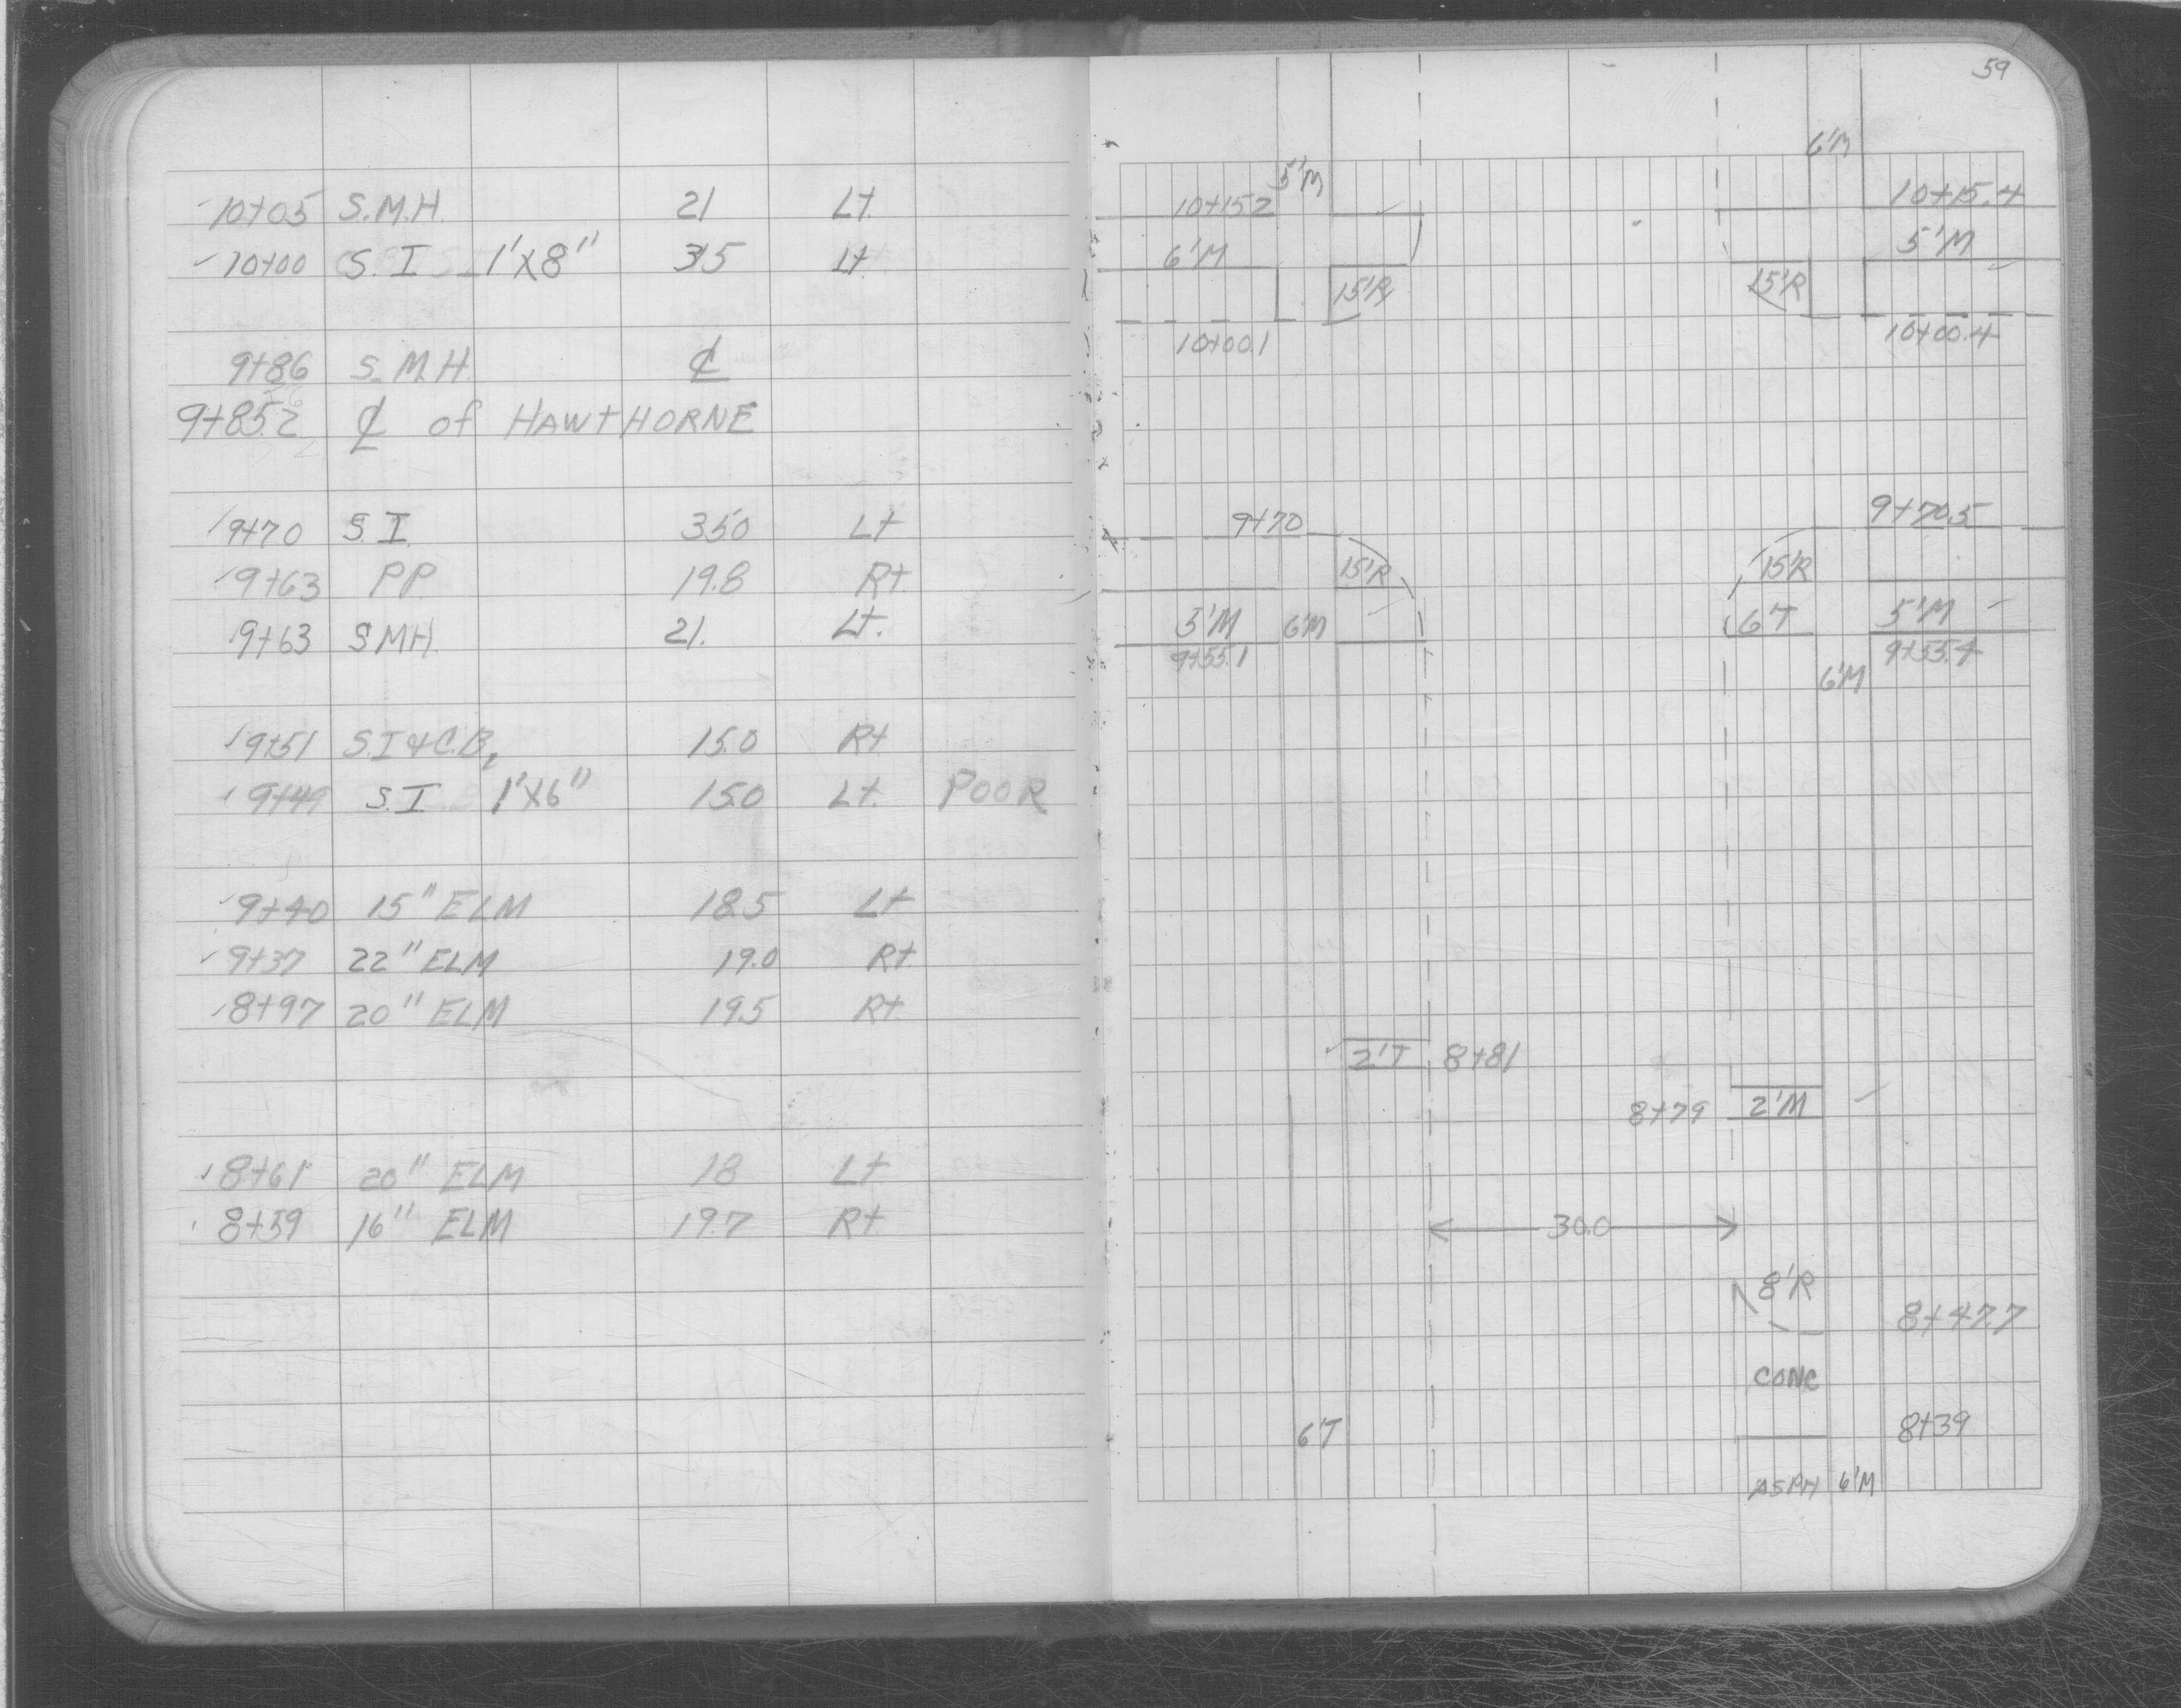 10+05 S.M.H. 21 Lt.
10+00 S.I 1'X8" 35 Lt.
9+86 S.M.H. ℄
9+85.2 ℄ of HAWTHORNE
9+70 S.I. 35.0 Lt
9+63 P.P. 19.8 Rt.
9+63 SMH. 21. Lt.
9+51 S.I & C.B. 15.0 Rt
9+49 S.I. 1'X6" 15.0 Lt. POOR
9+40 15" ELM 18.5 Lt
9+37 22" ELM 19.0 Rt
8+97 20" ELM 19.5 Rt
8+61 20" ELM 18 Lt
8+59 16" ELM 19.7 Rt
59
6'M
5'M
10+15.2 10+15.4
6'M 5'M
15'R 15'R
10+00.1 10+00.4
9+70 9+70.5
15'R 15'R
5'M 6'M 6'T 5'M
9+55.1 9+55.4
6'M
2'T 8+81
8+79 2'M
30.0
8'R
8+47.7
CONC
6'T 8+39
ASPH 6'M